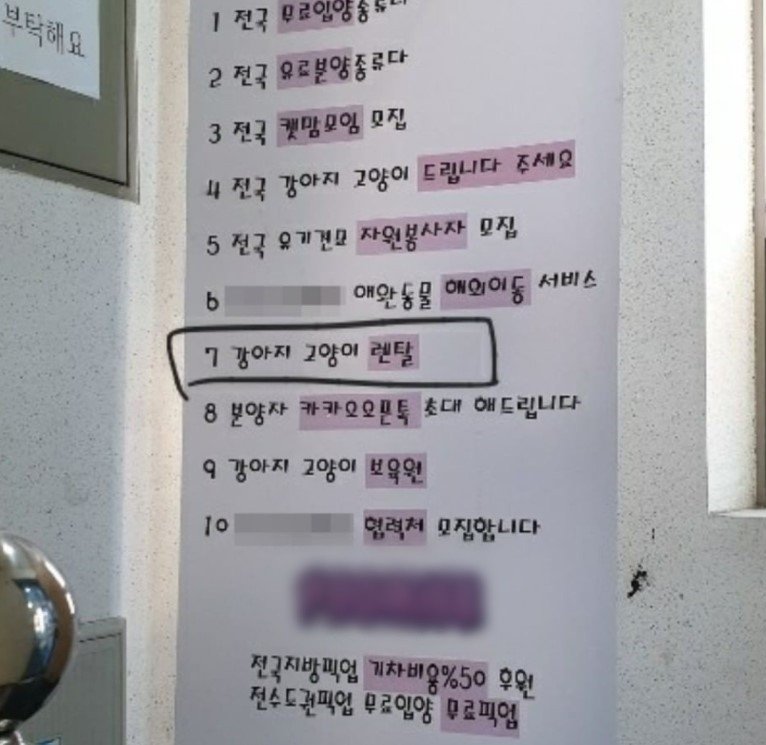 부탁해요
1 전국 무료입양종류다
2 전국 유료분양종류다
3 전국 캣맘모임 모집
4 전국 강아지 고양이 드립니다 주세요
5 전국 유기견모 자원봉사자 모집
6 애완동물 해외이동 서비스
7 강아지 고양이 렌탈
8 분양자 카카오오픈톡 초대 해드립니다
9 강아지 고양이 보육원
10 협력처 모집합니다
전국지방픽업 기차비용%50 후원
전수도권픽업 무료입양 무료픽업